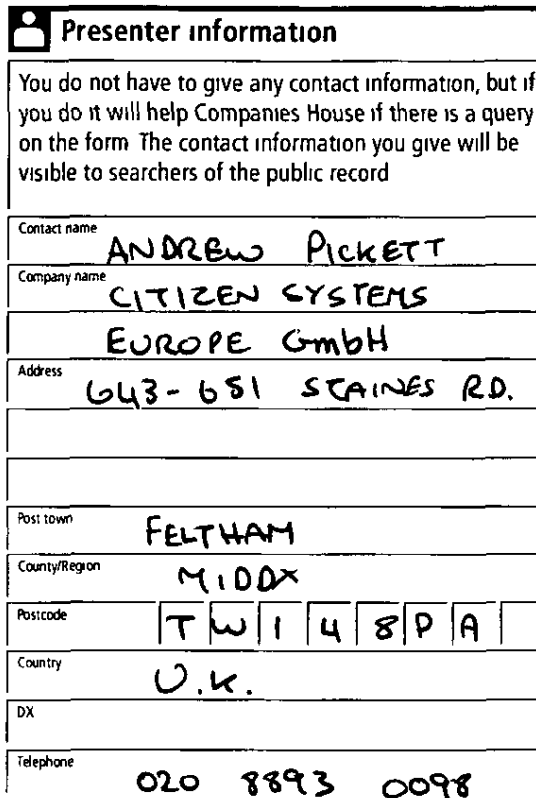 Presenter information
You do not have to give any contact information, but if
you do it will help Companies House if there is a query
on the form The contact information you give will be
visible to searchers of the public record
Contact name
ANDREW PICKETT
Company name
CITIZEN SYSTEMS
EUROPE GmbH
Address
643-651 STAINES RD.
Post town
FELTHAM
County/Region
MIDDX
Postcode
TW14 8PA
Country
U.K.
DX
Telephone
020 8893 0098